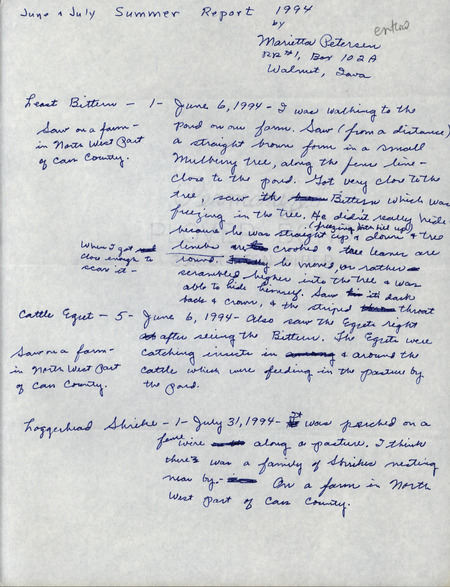 June & July Summer Report 1994
by
Marietta Petersen
RR#1, Box 102A
Walnut, Iowa
Least Bittern - 1 - June 6, 1994 - I was walking to the
pond on our farm. Saw (from a distance)
a straight brown form in a small
Mulberry tree, along the fence line -
close to the pond. Got very close to the
tree, saw the Bittern which was
freezing in the tree. He didn't really hide
because he was straight up & down & tree
(freezing bill up)
limbs crooked & leaves are
round. he moved, or rather
scrambled higher into the tree & was
able to hide himself. Saw it's dark
back & crown, & the striped throat
Saw on a farm -
in North West Part
of Cass County.
When I got
close enough to
scare it -
Cattle Egret - 5 - June 6, 1994 - Also saw the Egrets right
after seeing the Bittern. The Egrets were
catching insects in & around the
cattle which were feeding in the pasture by
the pond.
Saw on a farm -
in North West Part
of Cass County.
Loggerhead Shrike - 1 - July 31, 1994 - It was perched on a
fence wire along a pasture. I think
there's was a family of Shrikes nesting
near by. - On a farm in North
West Part of Cass County.